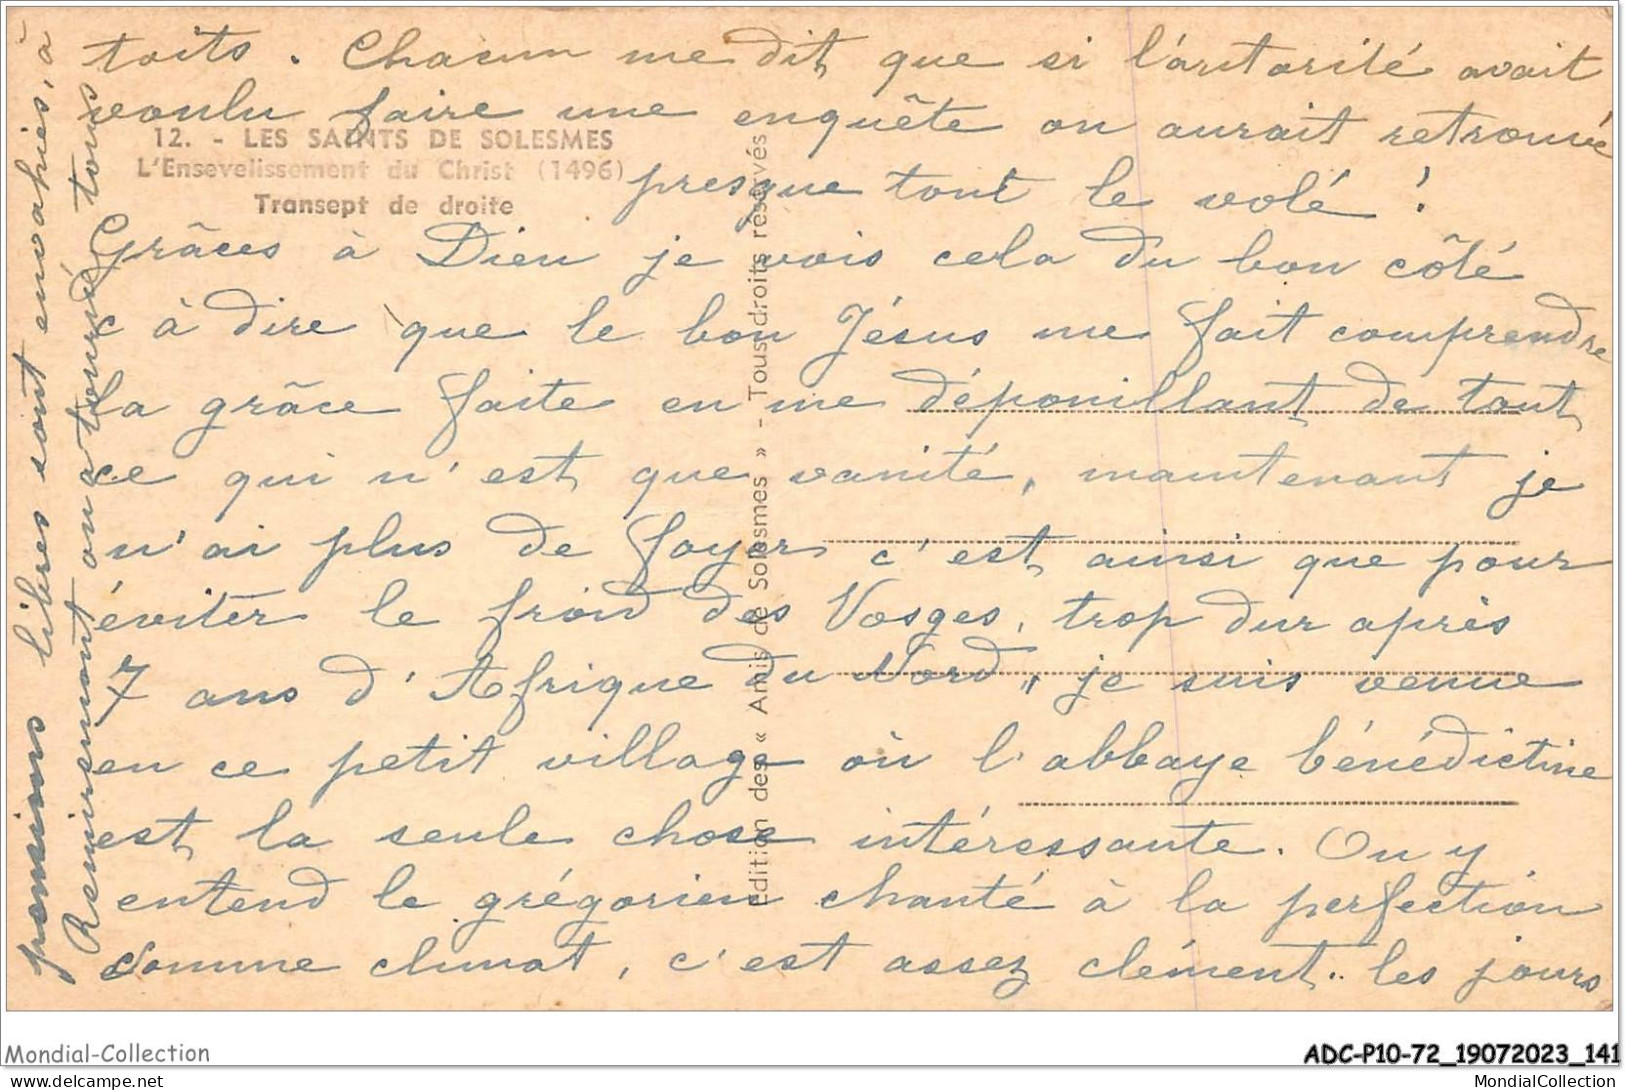 toits. Chacun me dit que si l'autorité avait
voulu faire une enquête on aurait retrouvé
12. - LES SAINTS DE SOLESMES
L'Ensevelissement du Christ (1496)
Transept de droite
presque tout le volé !
Grâces à Dieu je vois cela du bon côté
c à dire que le bon Jésus me fait comprendre
la grâce faite en me dépouillant de tout
ce qui n'est que vanité, maintenant je
n'ai plus de foyer c'est ainsi que pour
éviter le froid des Vosges, trop dur après
7 ans d'Afrique du Nord, je suis venue
en ce petit village où l'abbaye bénédictine
est la seule chose intéressante. On y
entend le grégorien chanté à la perfection
Comme climat, c'est assez clément.. les jours
pensions libres sont envahies, à
Remiremont on a tourné tous
Edition des « Amis de Solesmes » - Tous droits réservés
Mondial-Collection
ADC-P10-72_19072023_141
delcampe.net
MondialCollection